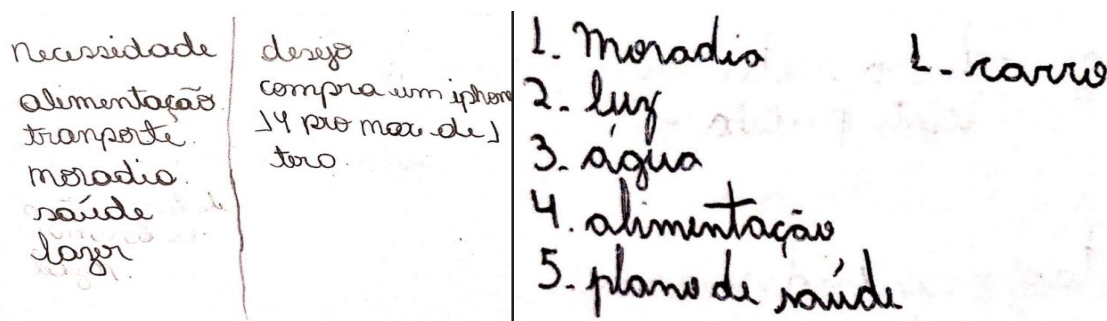 necessidade
alimentação
tranporte.
moradia.
saúde
lazer
desejo
compra um iphon
14 pro max de 1
tera.
1. Moradia
2. luz
3. água
4. alimentação
5. plano de saúde
1. carro